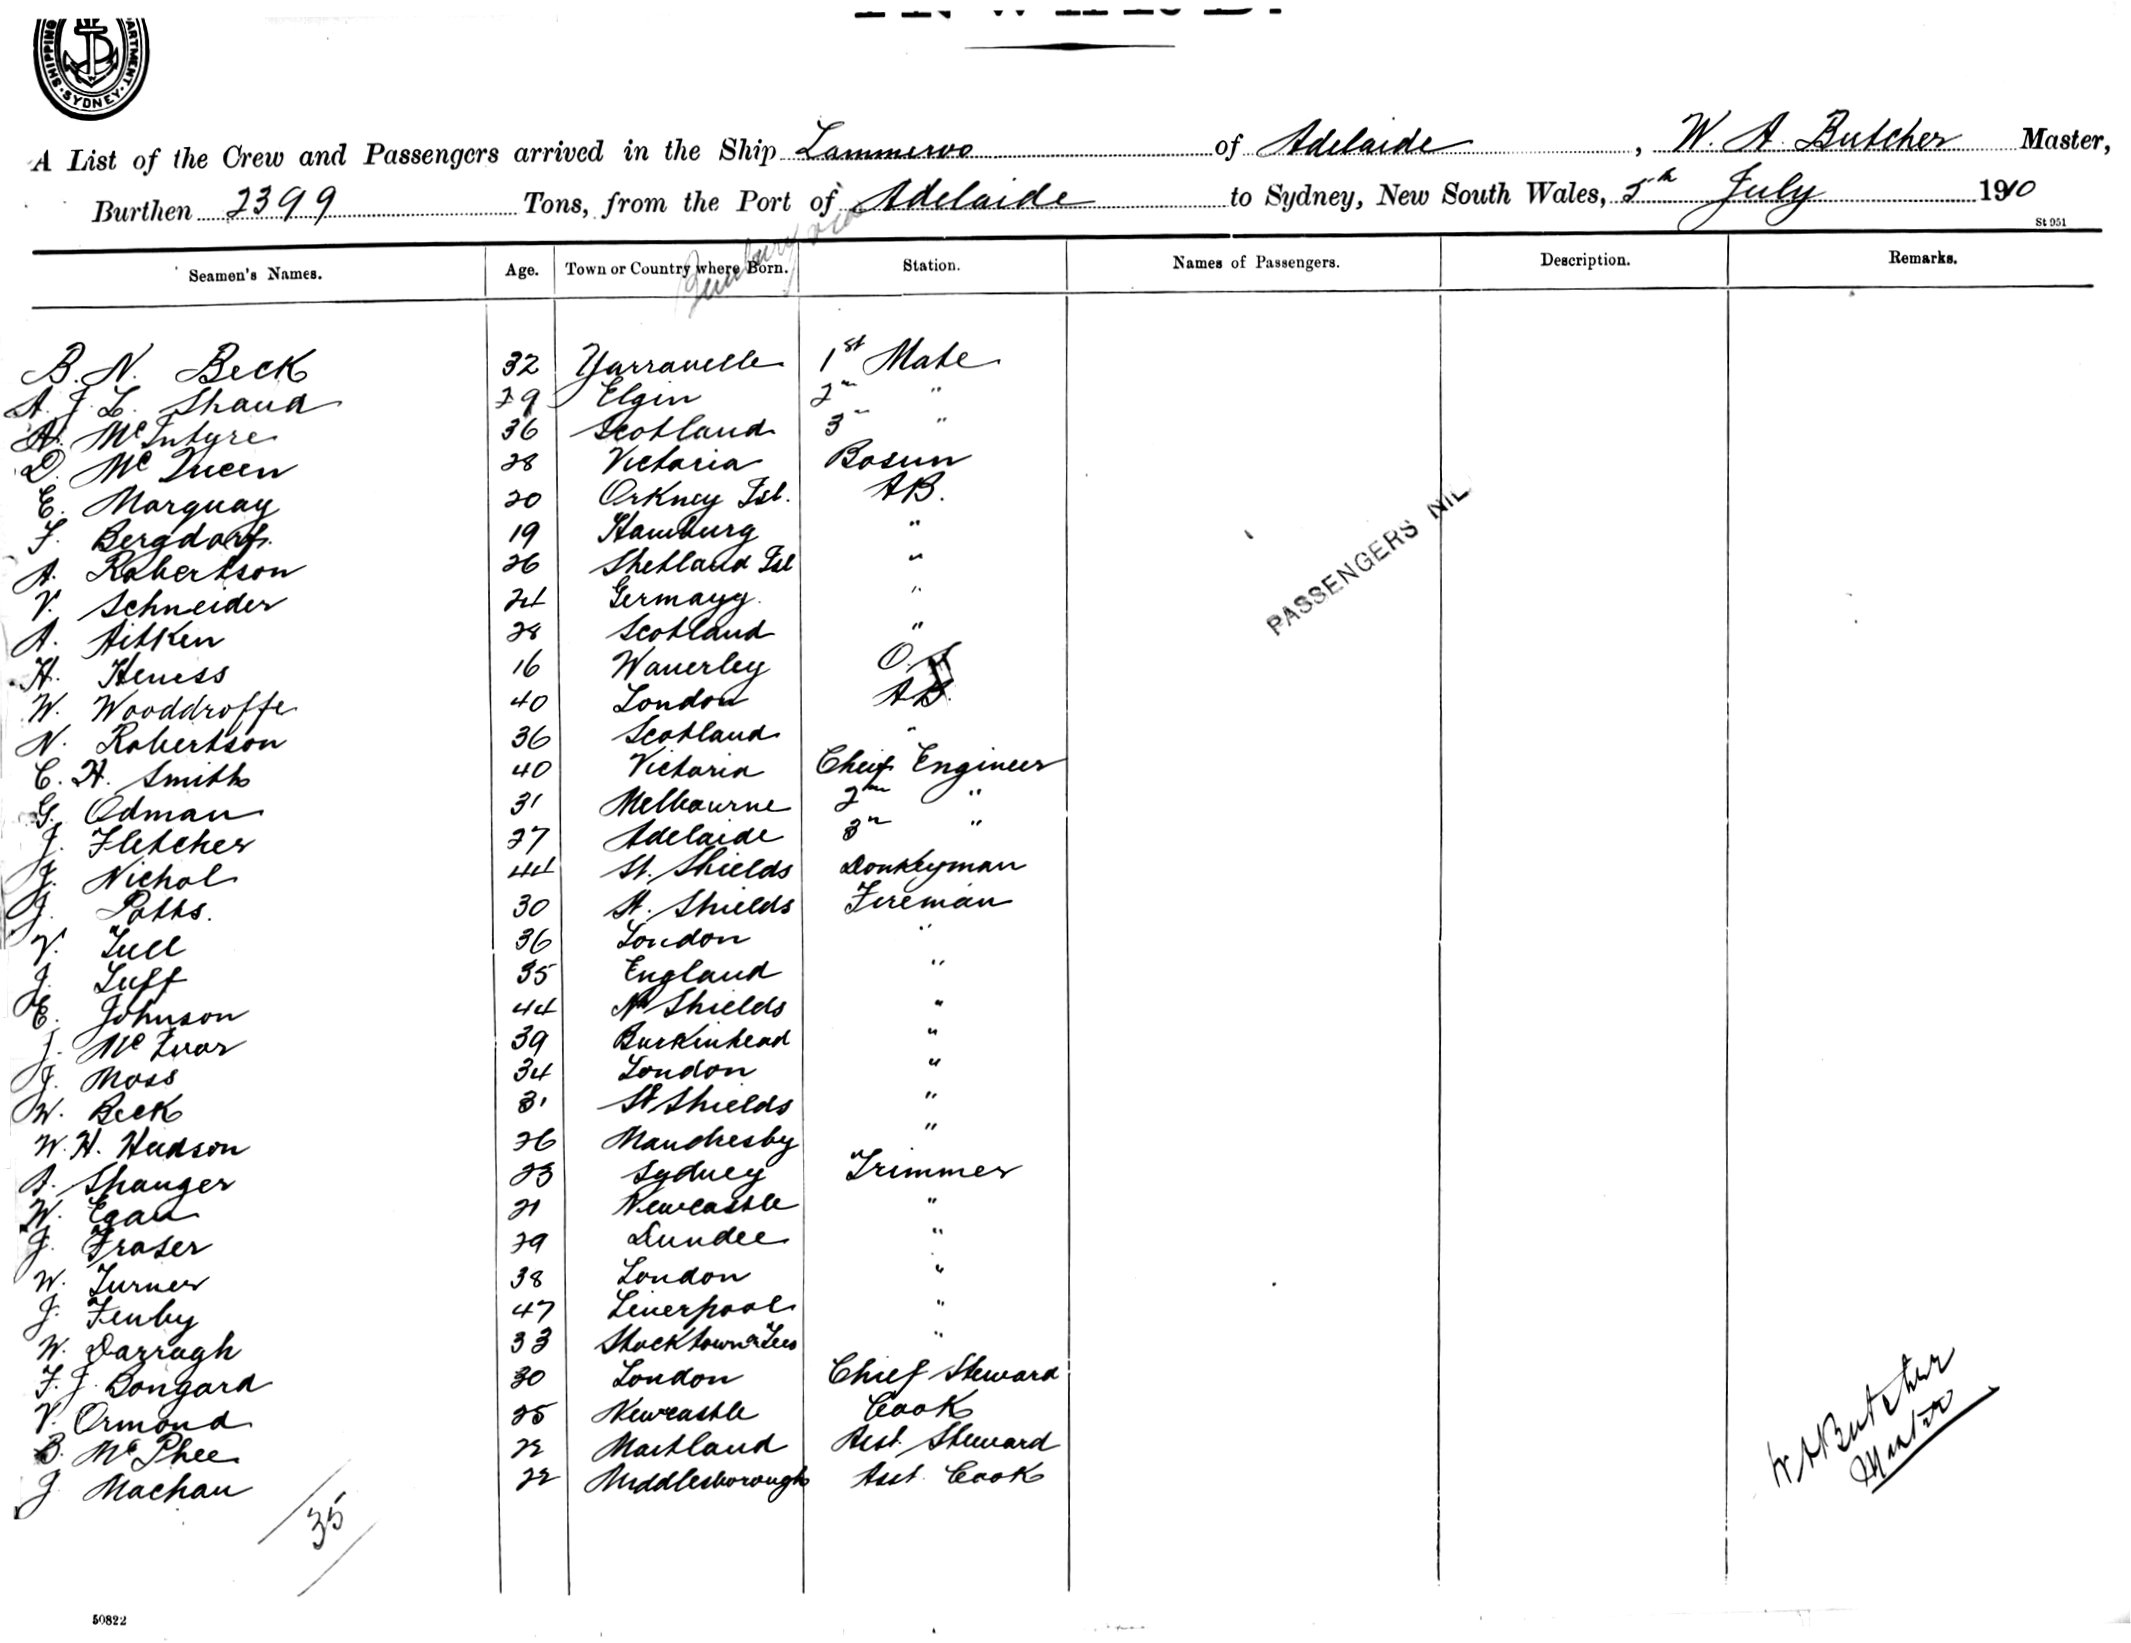 SHIPPING DEPARTMENT SYDNEY
A List of the Crew and Passengers arrived in the Ship Lammeroo of Adelaide, W. A. Butcher Master,
Burthen 2399 Tons, from the Port of Adelaide to Sydney, New South Wales, 5th July 1910
St 951
Bunbury via
Seamen's Names. Age. Town or Country where Born. Station. Names of Passengers. Description. Remarks.
B. N. Beck 32 Yarraville 1st Mate
A. J. L. Shand 29 Elgin 2n "
A. McIntyre 36 Scotland 3 "
D. McQueen 28 Victoria Bosun
E. Marquay 20 Orkney Isl. AB.
F. Bergdorf. 19 Hamburg "
A. Robertson 26 Shetland Isl "
V. Schneider 24 Germayy. "
A. Aitken 28 Scotland "
H. Heness 16 Waverley O.S
W. Wooddroffe 40 London AB.
N. Robertson 36 Scotland "
C. H. Smith 40 Victoria Cheif Engineer
G. Odman 31 Melbourne 2nd "
J. Fletcher 27 Adelaide 3rd "
J. Nichol 44 St. Shields Donkeyman
J. Potts. 30 St. Shields Fireman
V. Tull 36 London "
J. Luff 35 England "
E. Johnson 44 Nh Shields "
J. McIvor 39 Burkinhead "
J. Moss 34 London "
W. Beck 31 St Shields "
W. H. Hudson 26 "
A. Shanger 23 Sydney Trimmer
W. Egan 21 Newcastle "
J. Fraser 29 Dundee "
W. Turner 38 London "
J. Fenby 47 Liverpool "
W. Darragh 33 Stocktown o Tees "
F. J. Bongard 30 London Chief Steward
V. Ormond 25 Newcastle Cook
B. McPhee 22 Maitland Asst. Steward
J. Machan 22 Middlesborough Asst. Cook
PASSENGERS NIL
35
W A Butcher
Master
50822